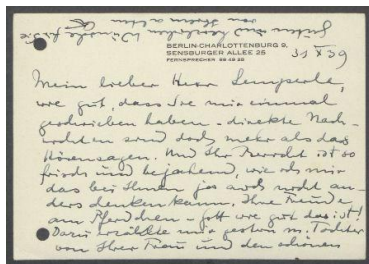 BERLIN-CHARLOTTENBURG 9,
SENSBURGER ALLEE 25
FERNSPRECHER 99 49 25
31 X 39
Mein lieber Herr Lemperle,
wie gut, dass Sie mir einmal
geschrieben haben – direkte Nach-
richten sind doch mehr als das
Hörensagen. Und Ihr Bericht ist so
frisch und bejahend, wie ich mir
das bei Ihnen gar nicht an-
ders denken kann. Ihre Freude
am Pferdchen – Gott wie gut das ist!
Dazu erzählte mir gestern m. Tochter
von Ihrer Frau und den schönen
Guten und herzlichen Wünsche für Sie
von Ihrem alten